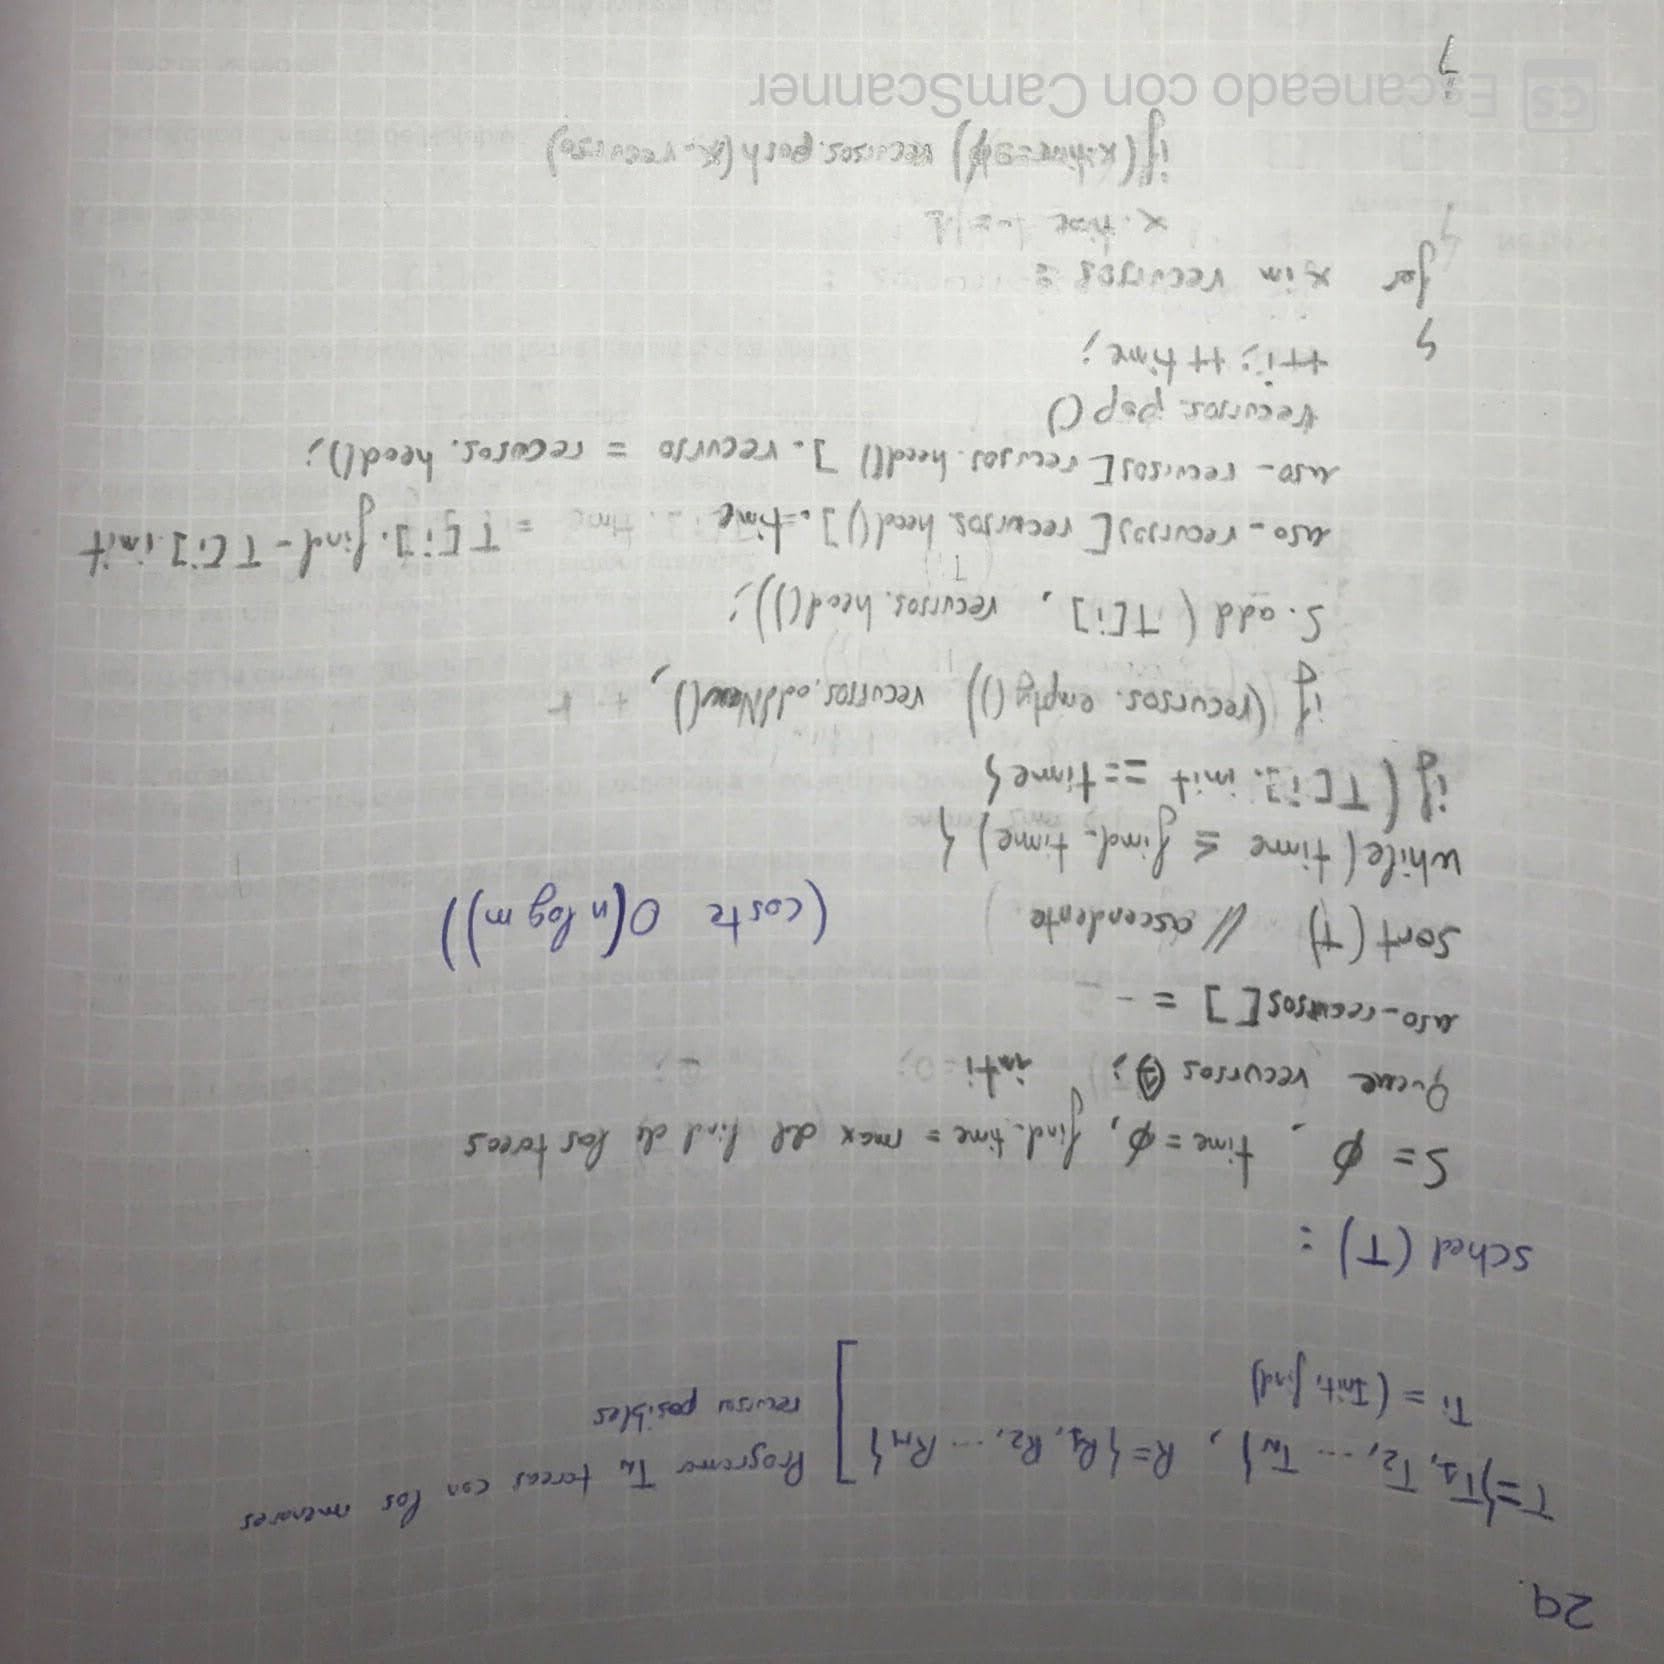 29.
T={T1, T2, ... TN}, R={R1, R2, ... RM}] Programar TN tareas con los menores
Ti = (Init, find) recursos posibles
sched (T) :
S= ϕ, time = ϕ, find_time = max del find de las tareas
Queue recursos (1); int i =0;
uso_recursos[ ] = -
sort(T) // ascendente (coste O(n log m))
while( time ≤ find_time) {
if ( T[i]. init == time {
if (recursos. empty()) recursos.addNew(),
S. add ( T[i] , recursos. head());
uso_recursos[ recursos. head() ]. time = T[i]. find - T[i]. init
uso_recursos[ recursos. head() ]. recurso = recursos. head();
recursos. pop ()
++i; ++ time;
}
for x in recursos :
x. time -= 1
if(x.time==ϕ) recursos.push(x.recurso)
}
CS Escaneado con CamScanner